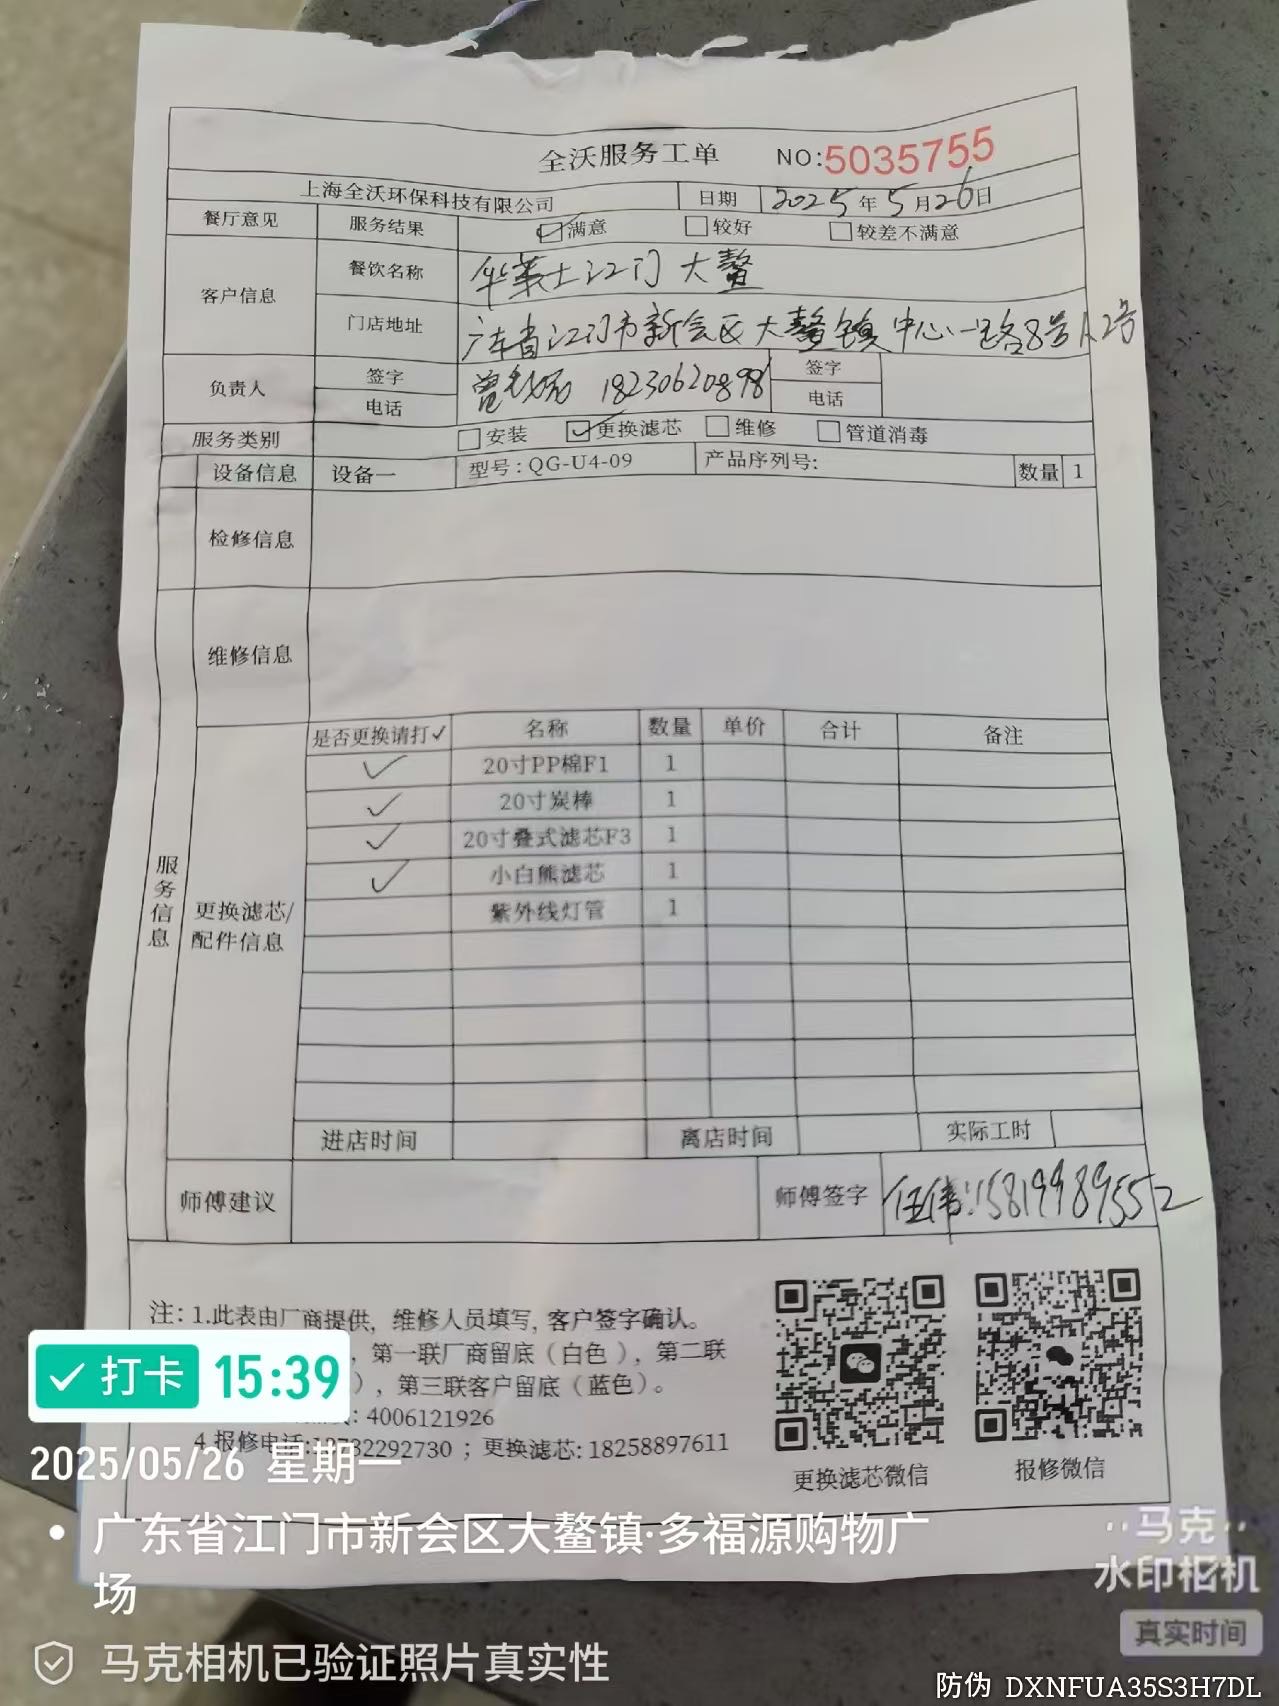 全沃服务工单 NO:5035755
上海全沃环保科技有限公司 日期 2025年5月26日
餐厅意见 服务结果 满意 较好 较差不满意
客户信息 餐饮名称 华莱士江门大鳌
门店地址 广东省江门市新会区大鳌镇中心一路8号A2号
负责人 签字 曾 18230620898 签字
电话 电话
服务类别 安装 更换滤芯 维修 管道消毒
设备信息 设备一 型号:QG-U4-09 产品序列号: 数量 1
检修信息
维修信息
服务信息
更换滤芯/
配件信息
是否更换请打✓ 名称 数量 单价 合计 备注
✓ 20寸PP棉F1 1
✓ 20寸炭棒 1
✓ 20寸叠式滤芯F3 1
✓ 小白熊滤芯 1
紫外线灯管 1
进店时间 离店时间 实际工时
师傅建议 师傅签字 任伟:15819989552
注: 1.此表由厂商提供, 维修人员填写, 客户签字确认。
, 第一联厂商留底(白色), 第二联
), 第三联客户留底(蓝色)。
4006121926
4.报修电话: 732292730 ; 更换滤芯: 18258897611
更换滤芯微信 报修微信
打卡 15:39
2025/05/26 星期一
广东省江门市新会区大鳌镇·多福源购物广
场
马克相机已验证照片真实性
马克
水印相机
真实时间
防伪 DXNFUA35S3H7DL